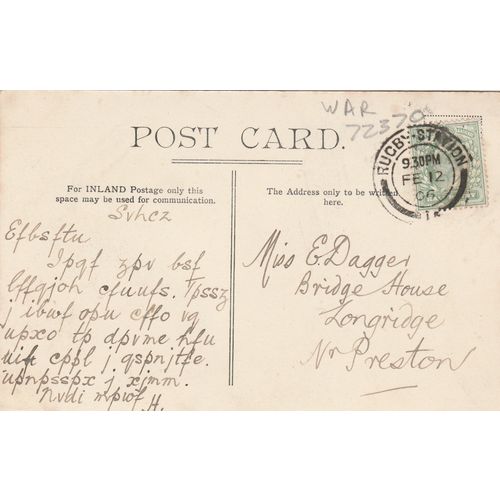 WAR
72370
POST CARD.
RUGBY STATION
9.30PM
FE 12
06
For INLAND Postage only this
space may be used for communication.
The Address only to be written
here.
Svhcz
Efbsftu
Ipqf zpv bsf
lffqjoh cfuufs. Tpssz
j ibwf opu cffo vq
upxo tp dpvme hfu
uif cppl j qspnjtfe.
upnpsspx j xjmm.
Nvdi mpwf H.
Miss E. Dagger
Bridge House
Longridge
Nr Preston